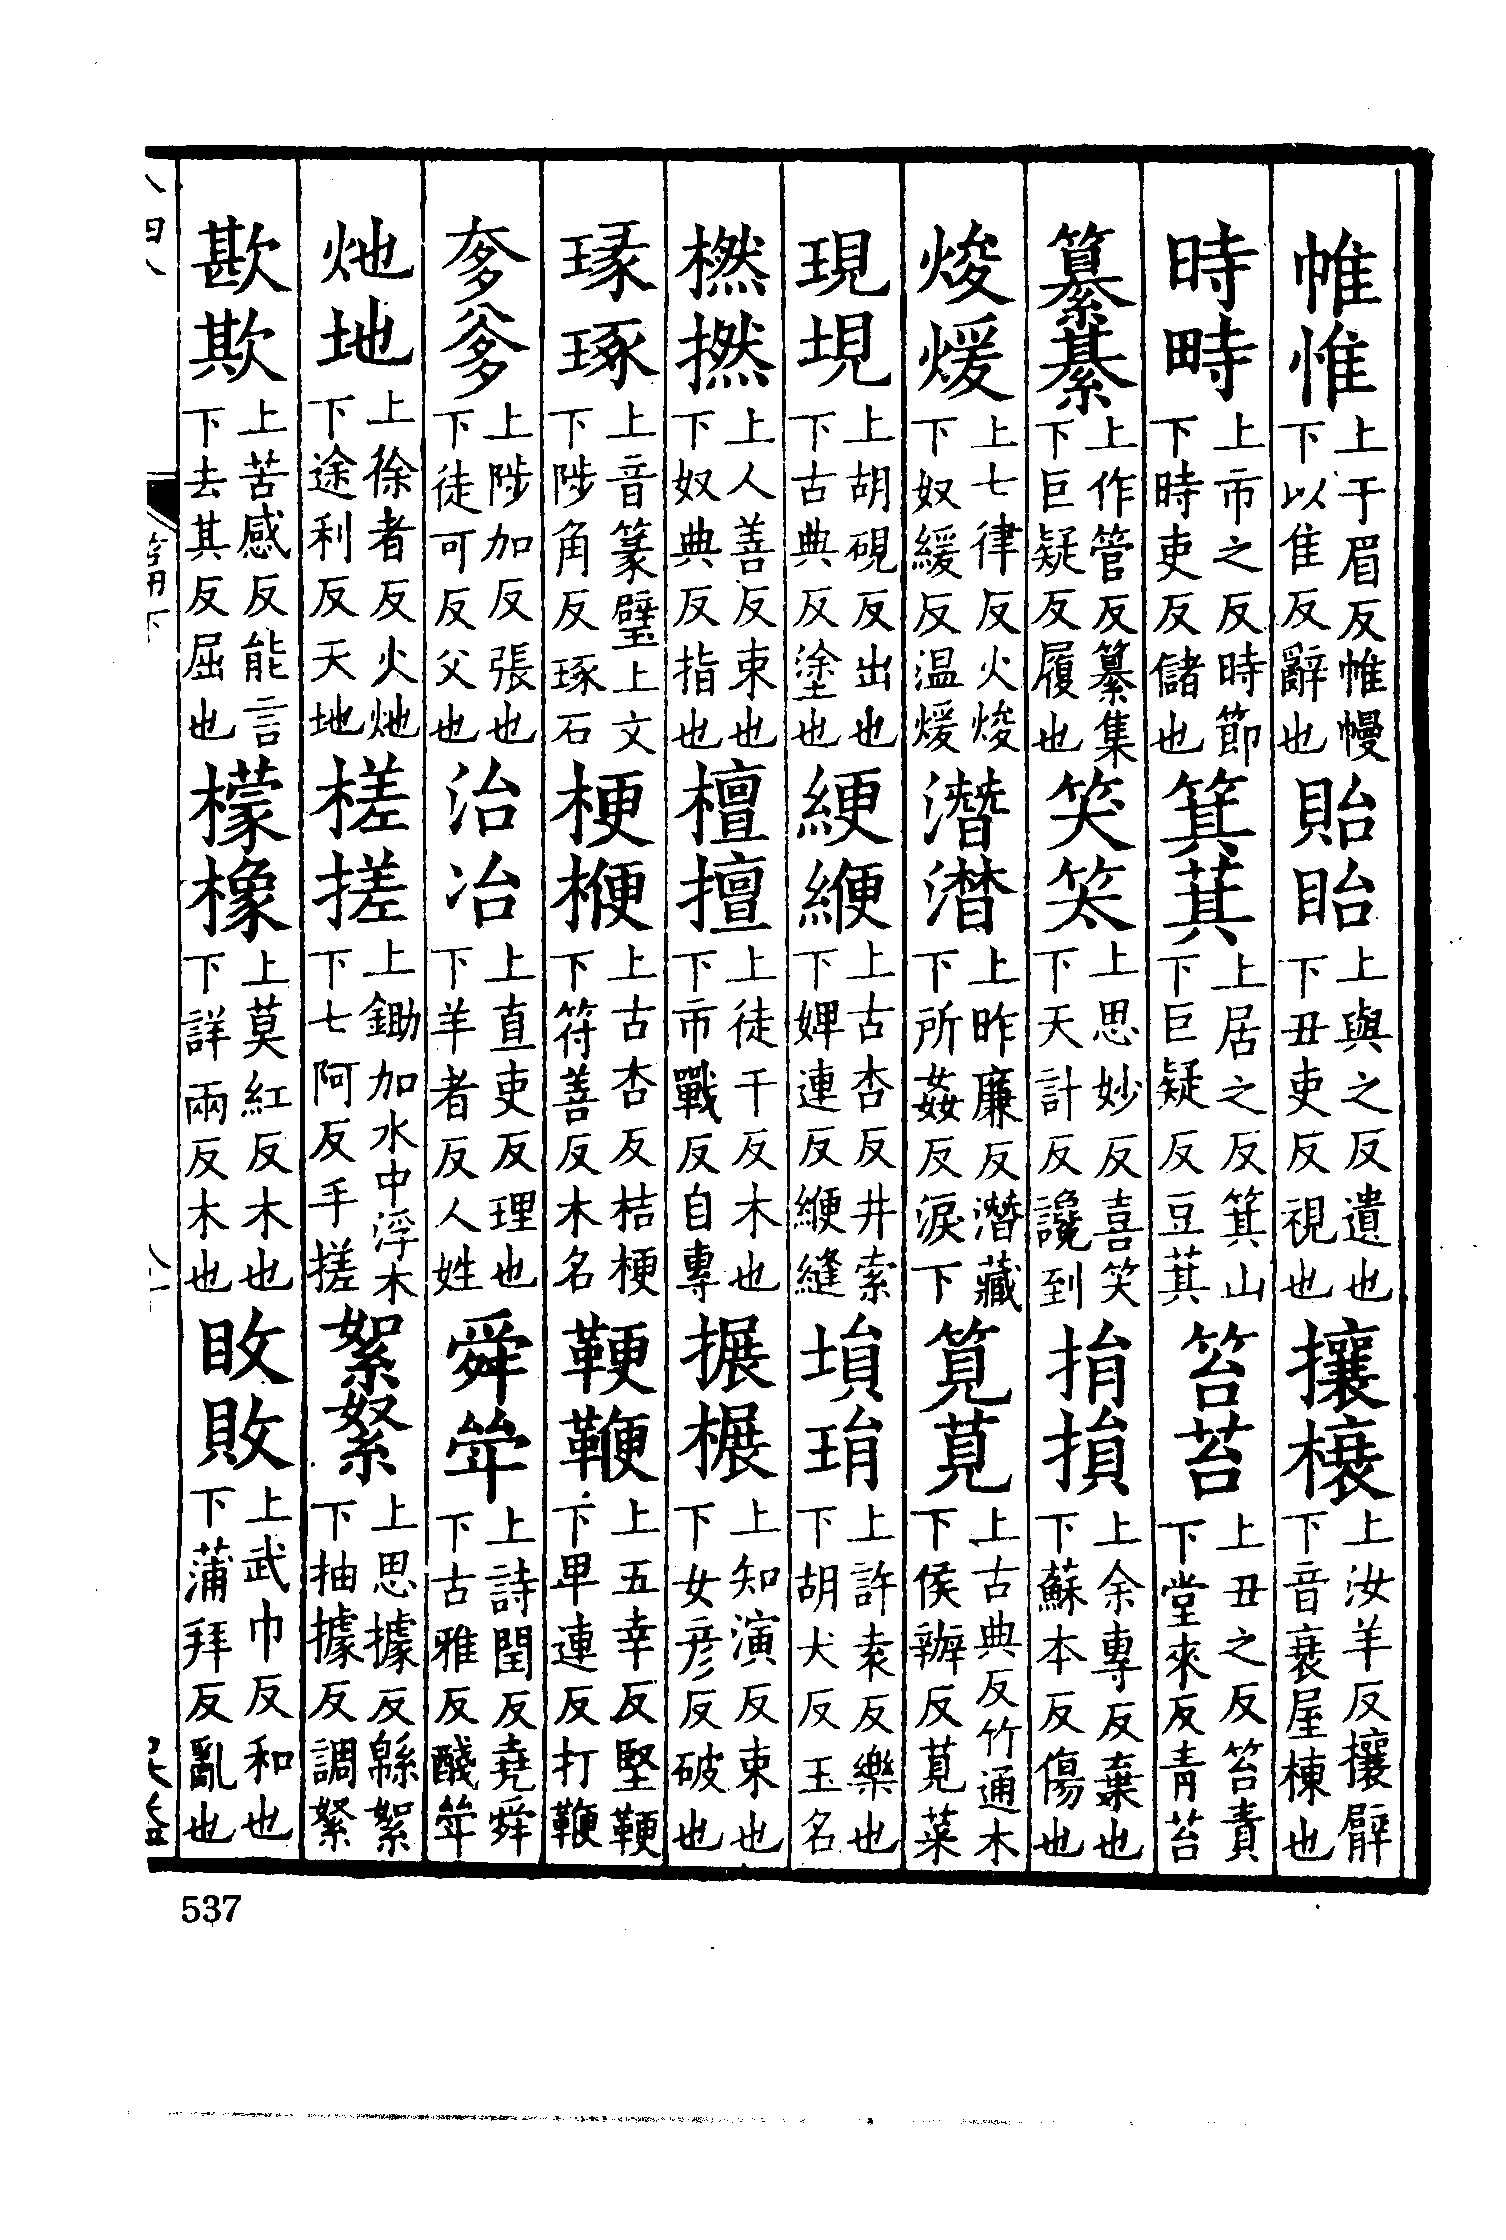 帷惟上于眉反帷幔下以隹反辭也貽眙上與之反遺也下丑吏反視也攘榱上汝羊反攘臂下音衰屋棟也
時畤上市之反時節下時吏反儲也箕萁上居之反箕山下巨疑反豆萁笞苔上丑之反笞責下堂來反青苔
纂綦上作管反纂集下巨疑反履也笑䇨上思妙反喜笑下天計反讒到捐損上余專反棄也下蘇本反傷也
焌煖上七律反火焌下奴緩反温煖潛潸上昨廉反潛藏下所姦反淚下筧莧上古典反竹通木下侯辦反莧菜
現垷上胡硯反出也下古典反塗也綆緶上古杏反井索下婢連反緶縫塤琄上許袁反樂也下胡犬反玉名
橪撚上人善反束也下奴典反指也檀擅上徒干反木也下市戰反自專搌榐上知演反束也下女彦反破也
瑑琢上音篆璧上文下陟角反琢石梗楩上古杏反桔梗下符善反木名鞕鞭上五幸反堅鞕下卑連反打鞭
奓爹上陟加反張也下徒可反父也治冶上直吏反理也下羊者反人姓舜斝上詩閏反堯舜下古雅反醆斝
灺地上徐者反火灺下途利反天地槎搓上鋤加水中浮木下七阿反手搓絮絮上思據反緜絮下抽據反調絮
歁欺上苦感反能言下去其反屈也檬橡上莫紅反木也下詳兩反木也敃敗上武巾反和也下蒲拜反亂也
537